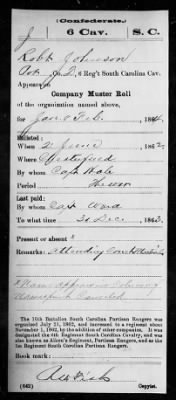 Confederate.
J 6 Cav. S. C.
Robt Johnson
Co. 2, 6 Reg't South Carolina Cav.
Appears on
Company Muster Roll
of the organization named above,
for Jan & Feb., 1864
Enlisted:
When 2 June 1862
Where Chesterfield
By whom Capt
Period The war
Last paid:
By whom Capt Ward
To what time 31 Dec., 1863
Present or absent*
Remarks: Attending Court Martial
* Name appears in column of
Cancelled
The 16th Battalion South Carolina Partisan Rangers was
organized July 21, 1862, and increased to a regiment about
November 1, 1862, by the addition of other companies. It was
designated the 6th Regiment South Carolina Cavalry, and was
also known as Aiken's Regiment, Partisan Rangers, and as the
1st Regiment South Carolina Partisan Rangers.
Book mark:
(642) Copyist.